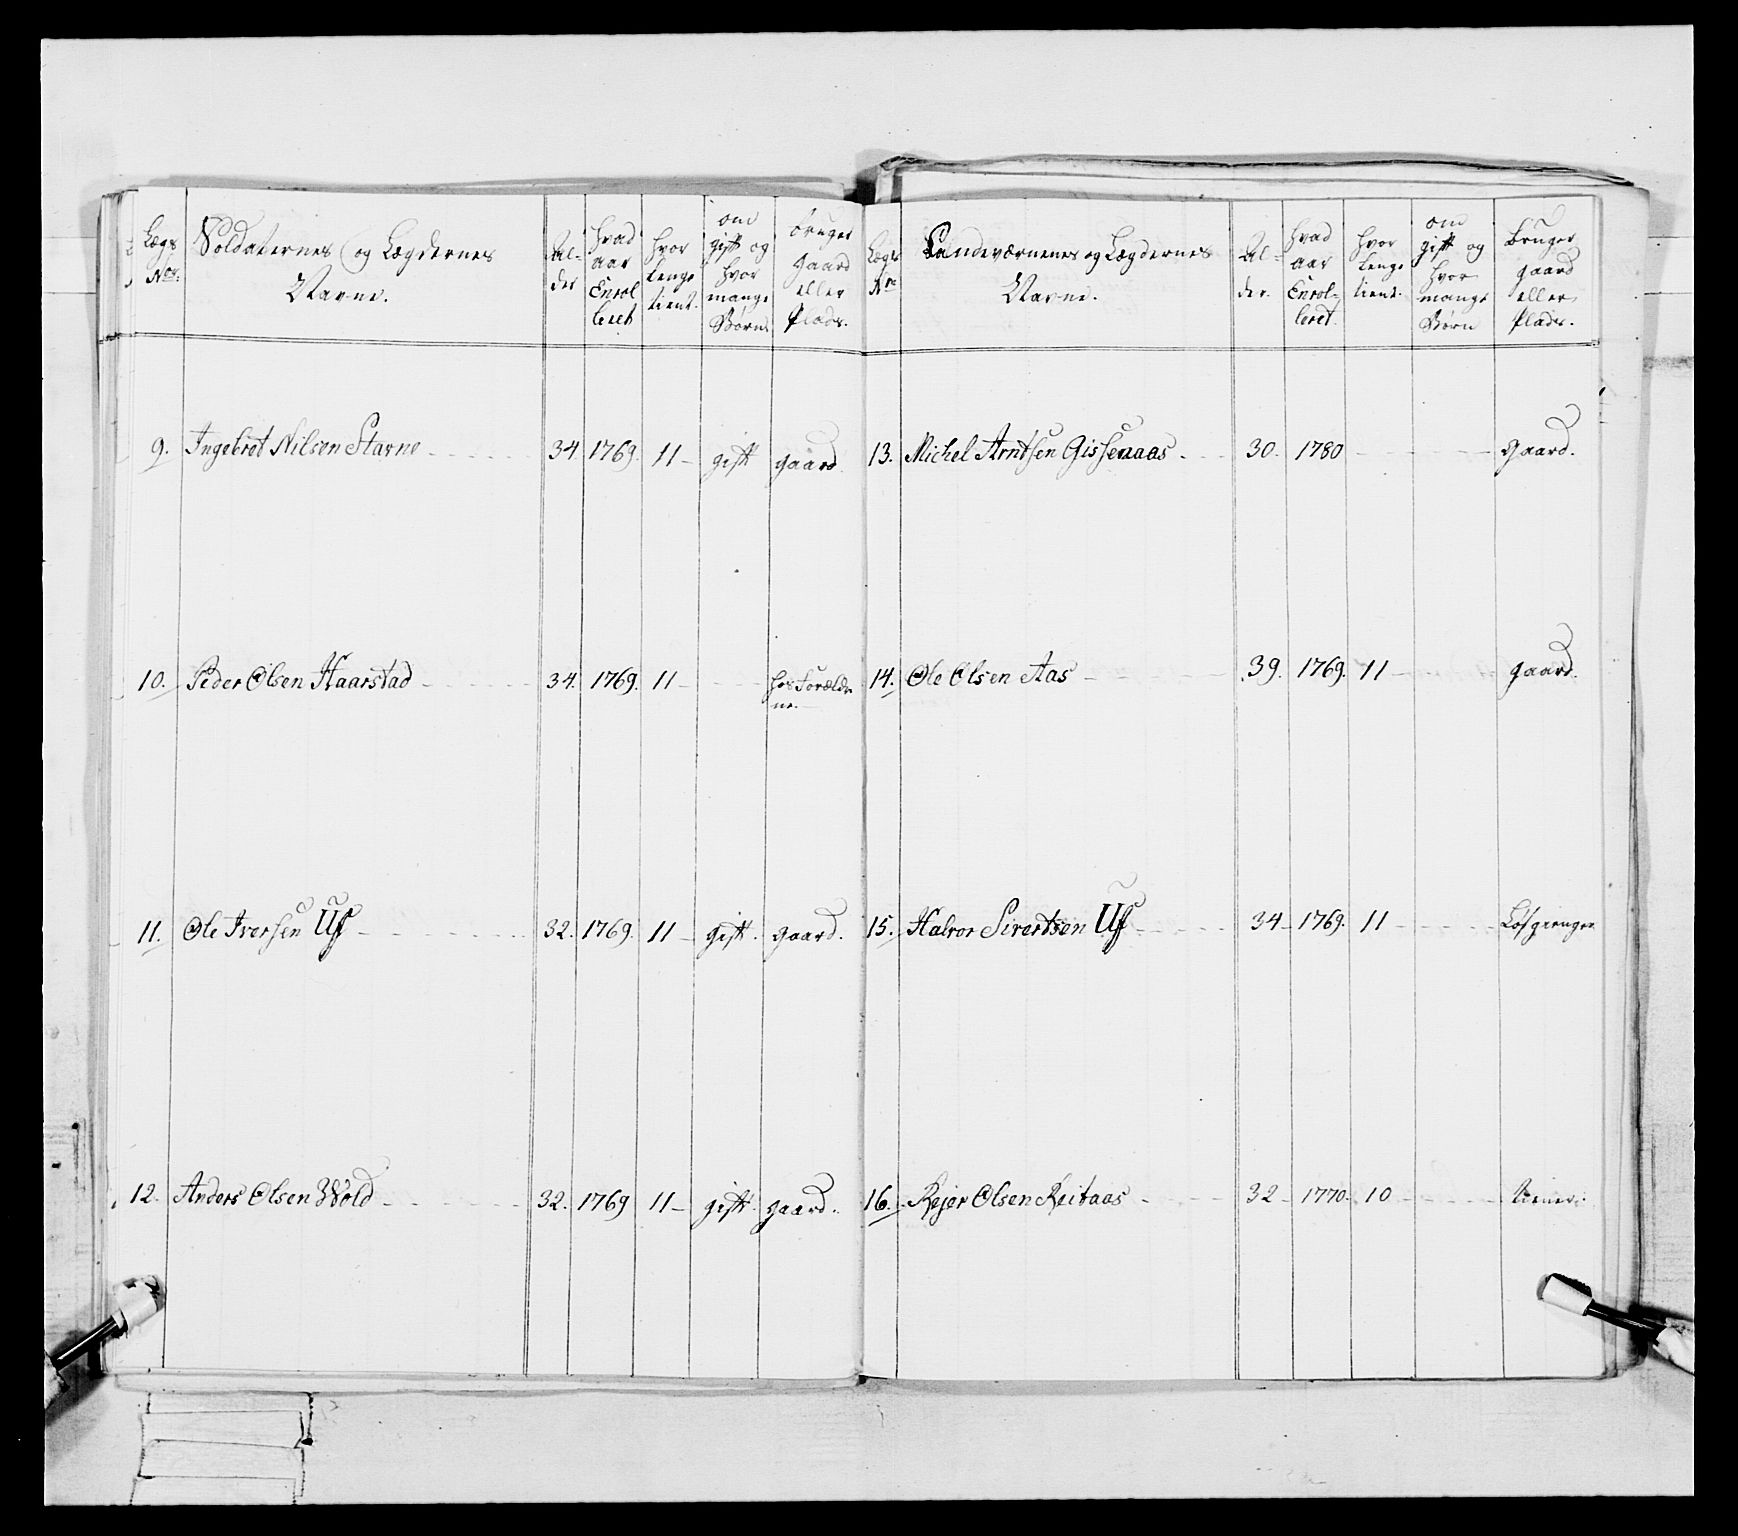 Lægs Nor.
Soldaternes og Lægdernes Navne.
Alder
hvad aar Enrolleret
hvor lenge tient.
om gift og hvor mange Børn
bruger gaard eller Plads.
9. Ingebret Nilsen Stavne 34. 1769. 11 gift gaard
10. Peder Olsen Haarstad 34. 1769. 11 hos Forældrene.
11. Ole Iversen Uf 32. 1769. 11 gift. gaard.
12. Anders Olsen Wold 32. 1769 11 gift. gaard.
Lægs Nr.
Landeværnenes og Lægdernes Navne.
Alder.
hvad aar Enrolleret.
hvor lenge tient.
om gift og hvor mange Børn
bruger gaard eller Plads.
13. Michel Arntsen Gissenaas 30. 1780 gaard.
14. Ole Olsen Aas 39. 1769. 11 gaard.
15. Halvor Sivertsen Uf 34 1769. 11
16. Rejer Olsen Reitaas 32 1770. 10 tiener.